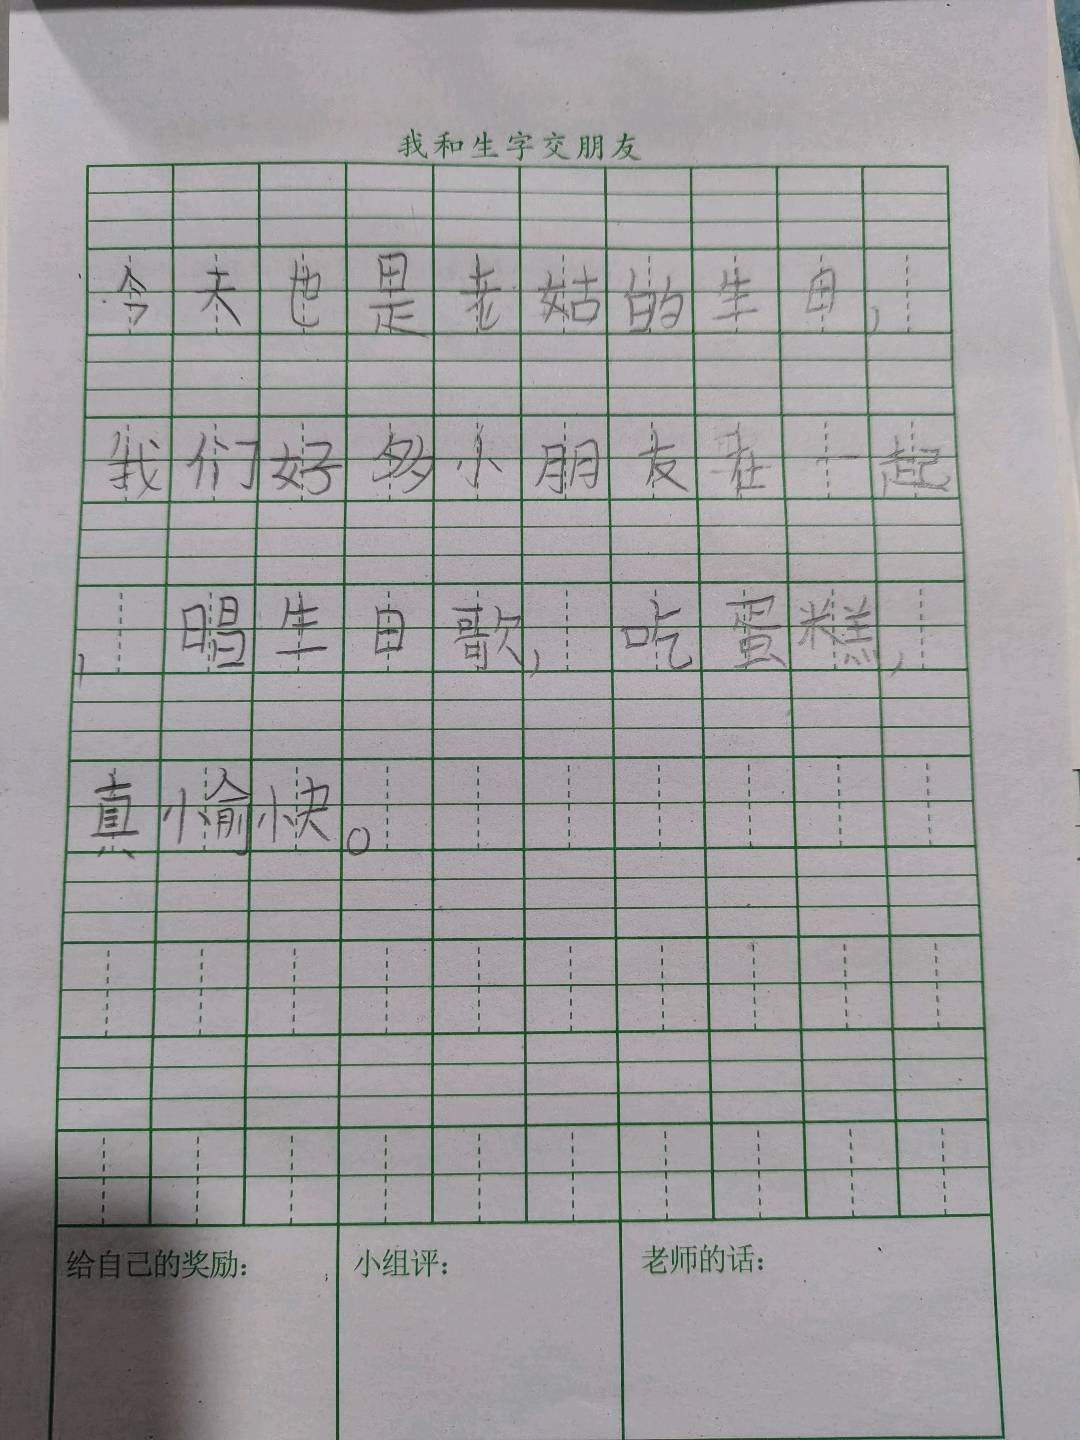 我和生字交朋友
今天也是老姑的生日,
我们好多小朋友在一起
,唱生日歌,吃蛋糕,
真愉快。
给自己的奖励: 小组评: 老师的话: